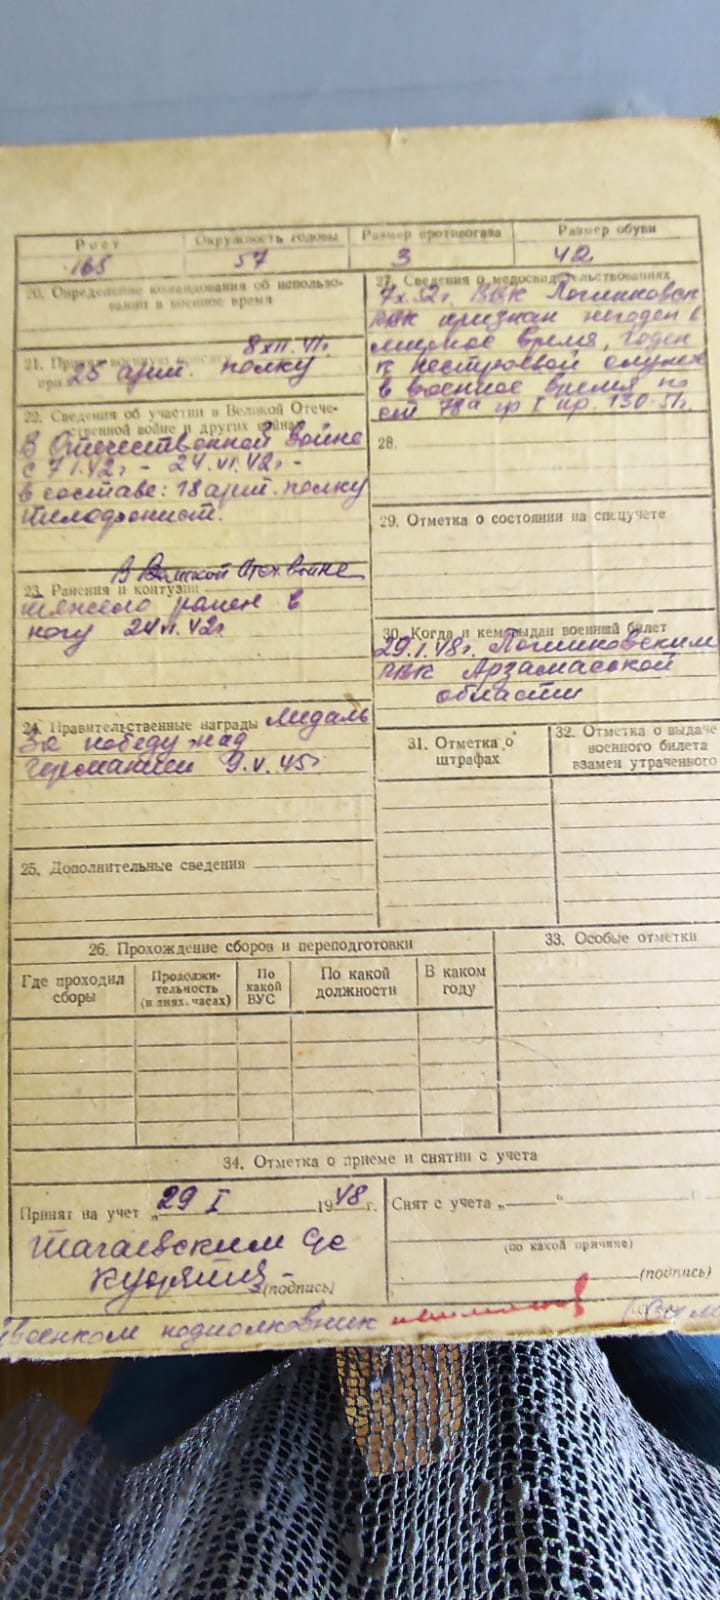 Рост Окружность головы Размер противогаза Размер обуви
165 57 3 42
20. Определение командования об использо-
вании в военное время
8 XII. 41г.
21.
25 арт. полку
22. Сведения об участии в Великой Отече-
ственной войне и других войнах
В Отечественной войне
с 7 I. 42г - 24. VI. 42г -
в составе: 18 арт. полку
телефонист.
В Великой Отеч. войне
23. Ранения и контузии
тяжело ранен в
ногу 24 VI. 42г
24. Правительственные награды Медаль
За победу над
Германией 9. V. 45г
25. Дополнительные сведения
27. Сведения о медосвидетельствованиях
7 X. 52г. ВВК
РВК признан негоден в
мирное время, годен
к нестроевой службе
в военное время по
ст 78а гр I пр. 130-51г.
28.
29. Отметка о состоянии на спецучете
30. Когда и кем выдан военный билет
29. I. 48г.
РВК Арзамасской
области
31. Отметка о
штрафах
32. Отметка о выдаче
военного билета
взамен утраченного
26. Прохождение сборов и переподготовки
Где проходил
сборы
Продолжи-
тельность
(в днях, часах)
По
какой
ВУС
По какой
должности
В каком
году
33. Особые отметки
34. Отметка о приеме и снятии с учета
Принят на учет „29 I 1948 г.
Шагаевским С/с
(подпись)
Снят с учета „ “
(по какой причине)
(подпись)
военком подполковник